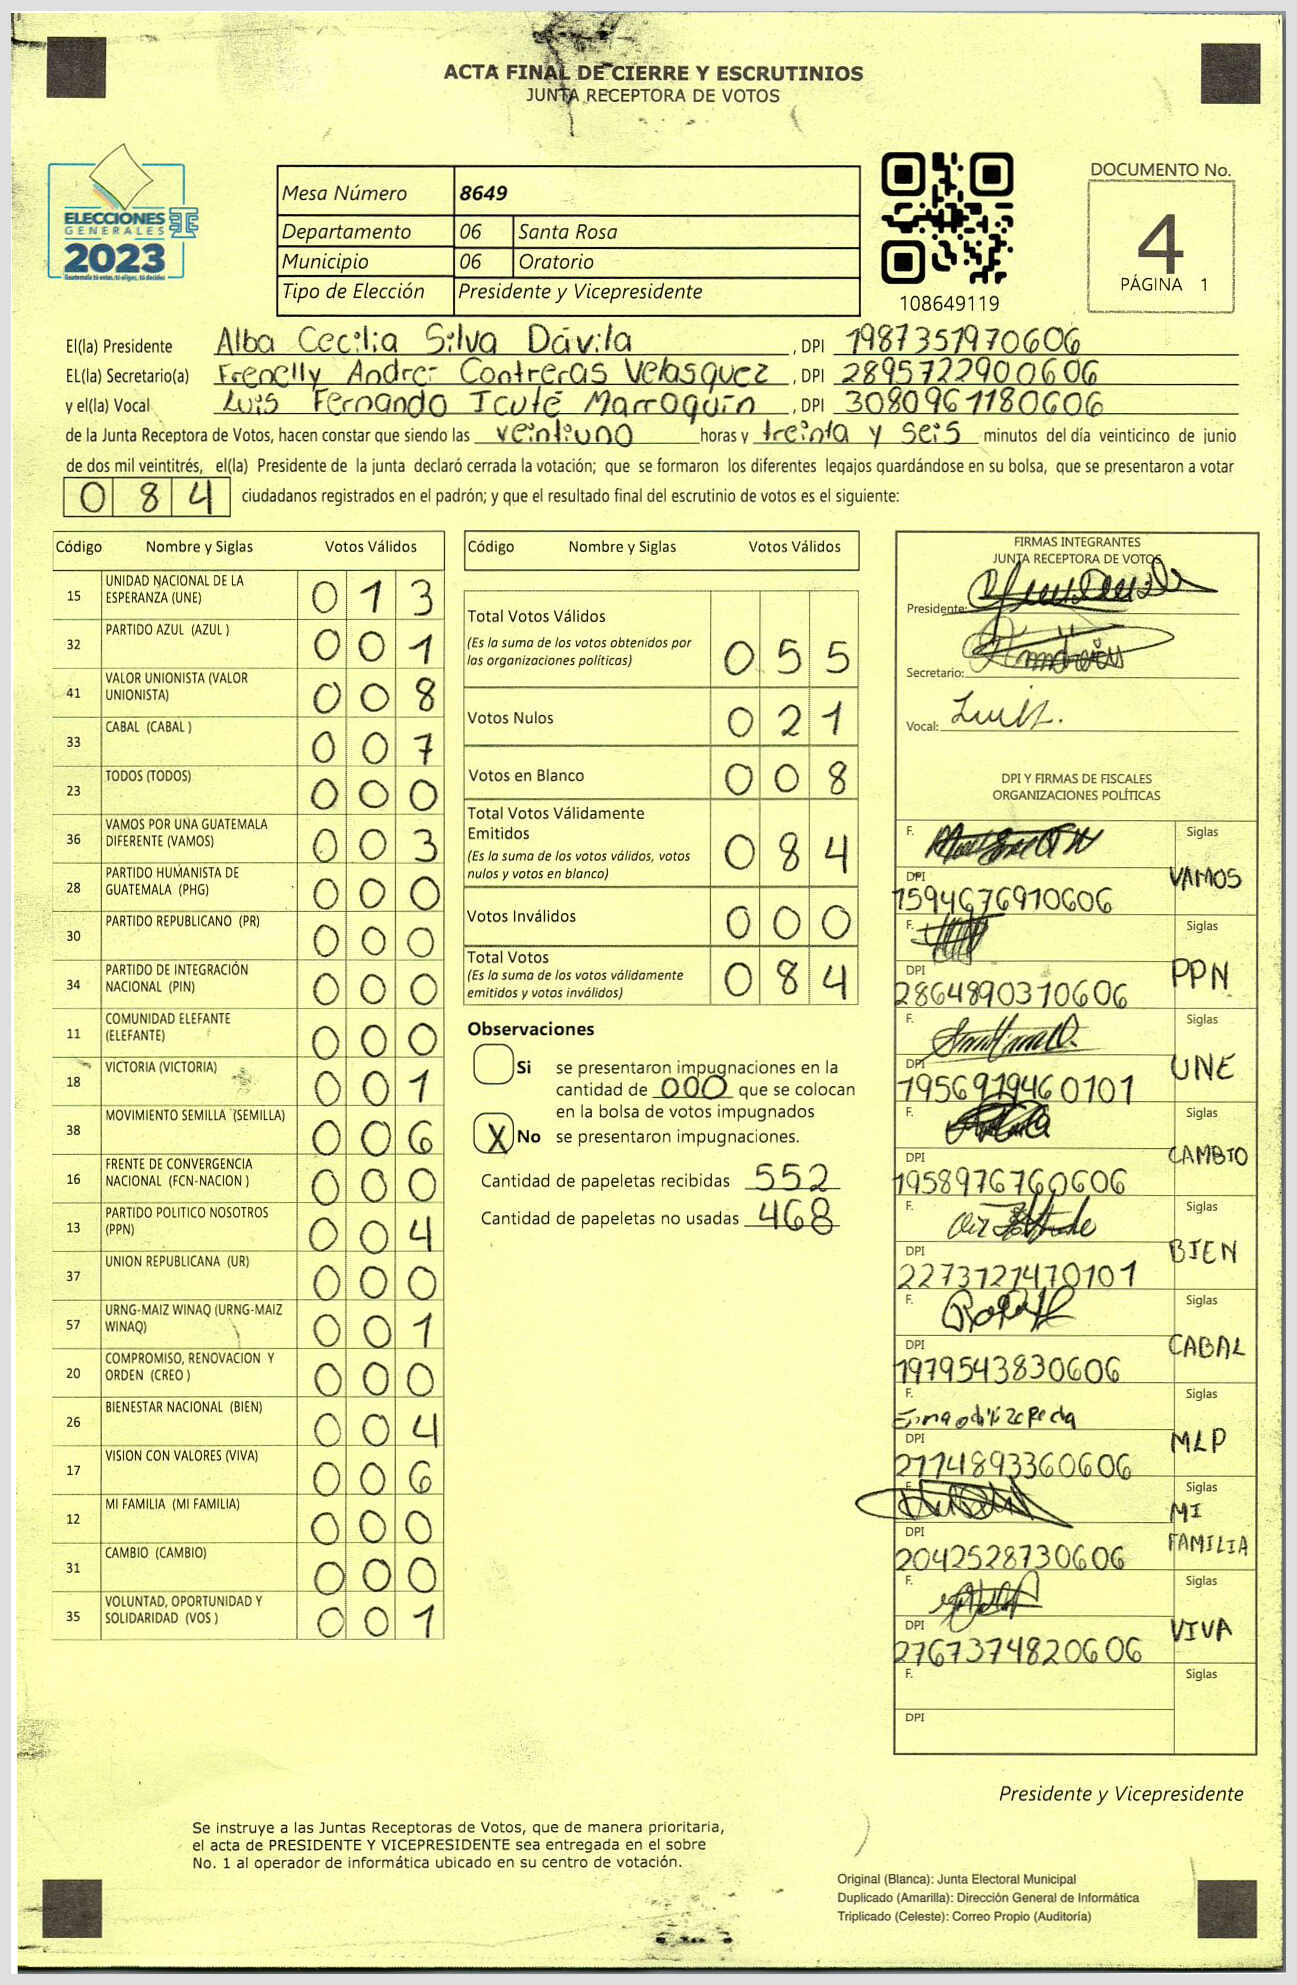 ACTA FINAL DE CIERRE Y ESCRUTINIOS
JUNTA RECEPTORA DE VOTOS
ELECCIONES
GENERALES
2023
Guatemala tú votas, tú eliges, tú decides
Mesa Número 8649
Departamento 06 Santa Rosa
Municipio 06 Oratorio
Tipo de Elección Presidente y Vicepresidente
108649119
DOCUMENTO No.
4
PÁGINA 1
El(la) Presidente Alba Cecilia Silva Dávila , DPI 1987351970606
EL(la) Secretario(a) Frenelly Andrei Contreras Velasquez , DPI 2895722900606
y el(la) Vocal Luis Fernando Icuté Marroquín , DPI 3080961180606
de la Junta Receptora de Votos, hacen constar que siendo las veintiuno horas y treinta y seis minutos del día veinticinco de junio
de dos mil veintitrés, el(la) Presidente de la junta declaró cerrada la votación; que se formaron los diferentes legajos guardándose en su bolsa, que se presentaron a votar
084 ciudadanos registrados en el padrón; y que el resultado final del escrutinio de votos es el siguiente:
Código Nombre y Siglas Votos Válidos
15 UNIDAD NACIONAL DE LA ESPERANZA (UNE) 013
32 PARTIDO AZUL (AZUL ) 001
41 VALOR UNIONISTA (VALOR UNIONISTA) 008
33 CABAL (CABAL ) 007
23 TODOS (TODOS) 000
36 VAMOS POR UNA GUATEMALA DIFERENTE (VAMOS) 003
28 PARTIDO HUMANISTA DE GUATEMALA (PHG) 000
30 PARTIDO REPUBLICANO (PR) 000
34 PARTIDO DE INTEGRACIÓN NACIONAL (PIN) 000
11 COMUNIDAD ELEFANTE (ELEFANTE) 000
18 VICTORIA (VICTORIA) 001
38 MOVIMIENTO SEMILLA (SEMILLA) 006
16 FRENTE DE CONVERGENCIA NACIONAL (FCN-NACION ) 000
13 PARTIDO POLITICO NOSOTROS (PPN) 004
37 UNION REPUBLICANA (UR) 000
57 URNG-MAIZ WINAQ (URNG-MAIZ WINAQ) 001
20 COMPROMISO, RENOVACION Y ORDEN (CREO ) 000
26 BIENESTAR NACIONAL (BIEN) 004
17 VISION CON VALORES (VIVA) 006
12 MI FAMILIA (MI FAMILIA) 000
31 CAMBIO (CAMBIO) 000
35 VOLUNTAD, OPORTUNIDAD Y SOLIDARIDAD (VOS ) 001
Código Nombre y Siglas Votos Válidos
Total Votos Válidos
(Es la suma de los votos obtenidos por
las organizaciones políticas) 055
Votos Nulos 021
Votos en Blanco 008
Total Votos Válidamente
Emitidos
(Es la suma de los votos válidos, votos
nulos y votos en blanco) 084
Votos Inválidos 000
Total Votos
(Es la suma de los votos válidamente
emitidos y votos inválidos) 084
Observaciones
Si se presentaron impugnaciones en la
cantidad de 000 que se colocan
en la bolsa de votos impugnados
X No se presentaron impugnaciones.
Cantidad de papeletas recibidas 552
Cantidad de papeletas no usadas 468
FIRMAS INTEGRANTES
JUNTA RECEPTORA DE VOTOS
Presidente:
Secretario:
Vocal:
DPI Y FIRMAS DE FISCALES
ORGANIZACIONES POLÍTICAS
F. Siglas
DPI VAMOS
1594676910606
F. Siglas
DPI PPN
2864890310606
F. Siglas
DPI UNE
1956919460101
F. Siglas
DPI CAMBIO
1958976760606
F. Siglas
DPI BIEN
2273121470101
F. Siglas
DPI CABAL
1979543830606
F. Siglas
DPI MLP
2714893360606
F. Siglas
MI
DPI FAMILIA
2042528730606
F. Siglas
DPI VIVA
2767374820606
F. Siglas
DPI
Presidente y Vicepresidente
Se instruye a las Juntas Receptoras de Votos, que de manera prioritaria,
el acta de PRESIDENTE Y VICEPRESIDENTE sea entregada en el sobre
No. 1 al operador de informática ubicado en su centro de votación.
Original (Blanca): Junta Electoral Municipal
Duplicado (Amarilla): Dirección General de Informática
Triplicado (Celeste): Correo Propio (Auditoría)